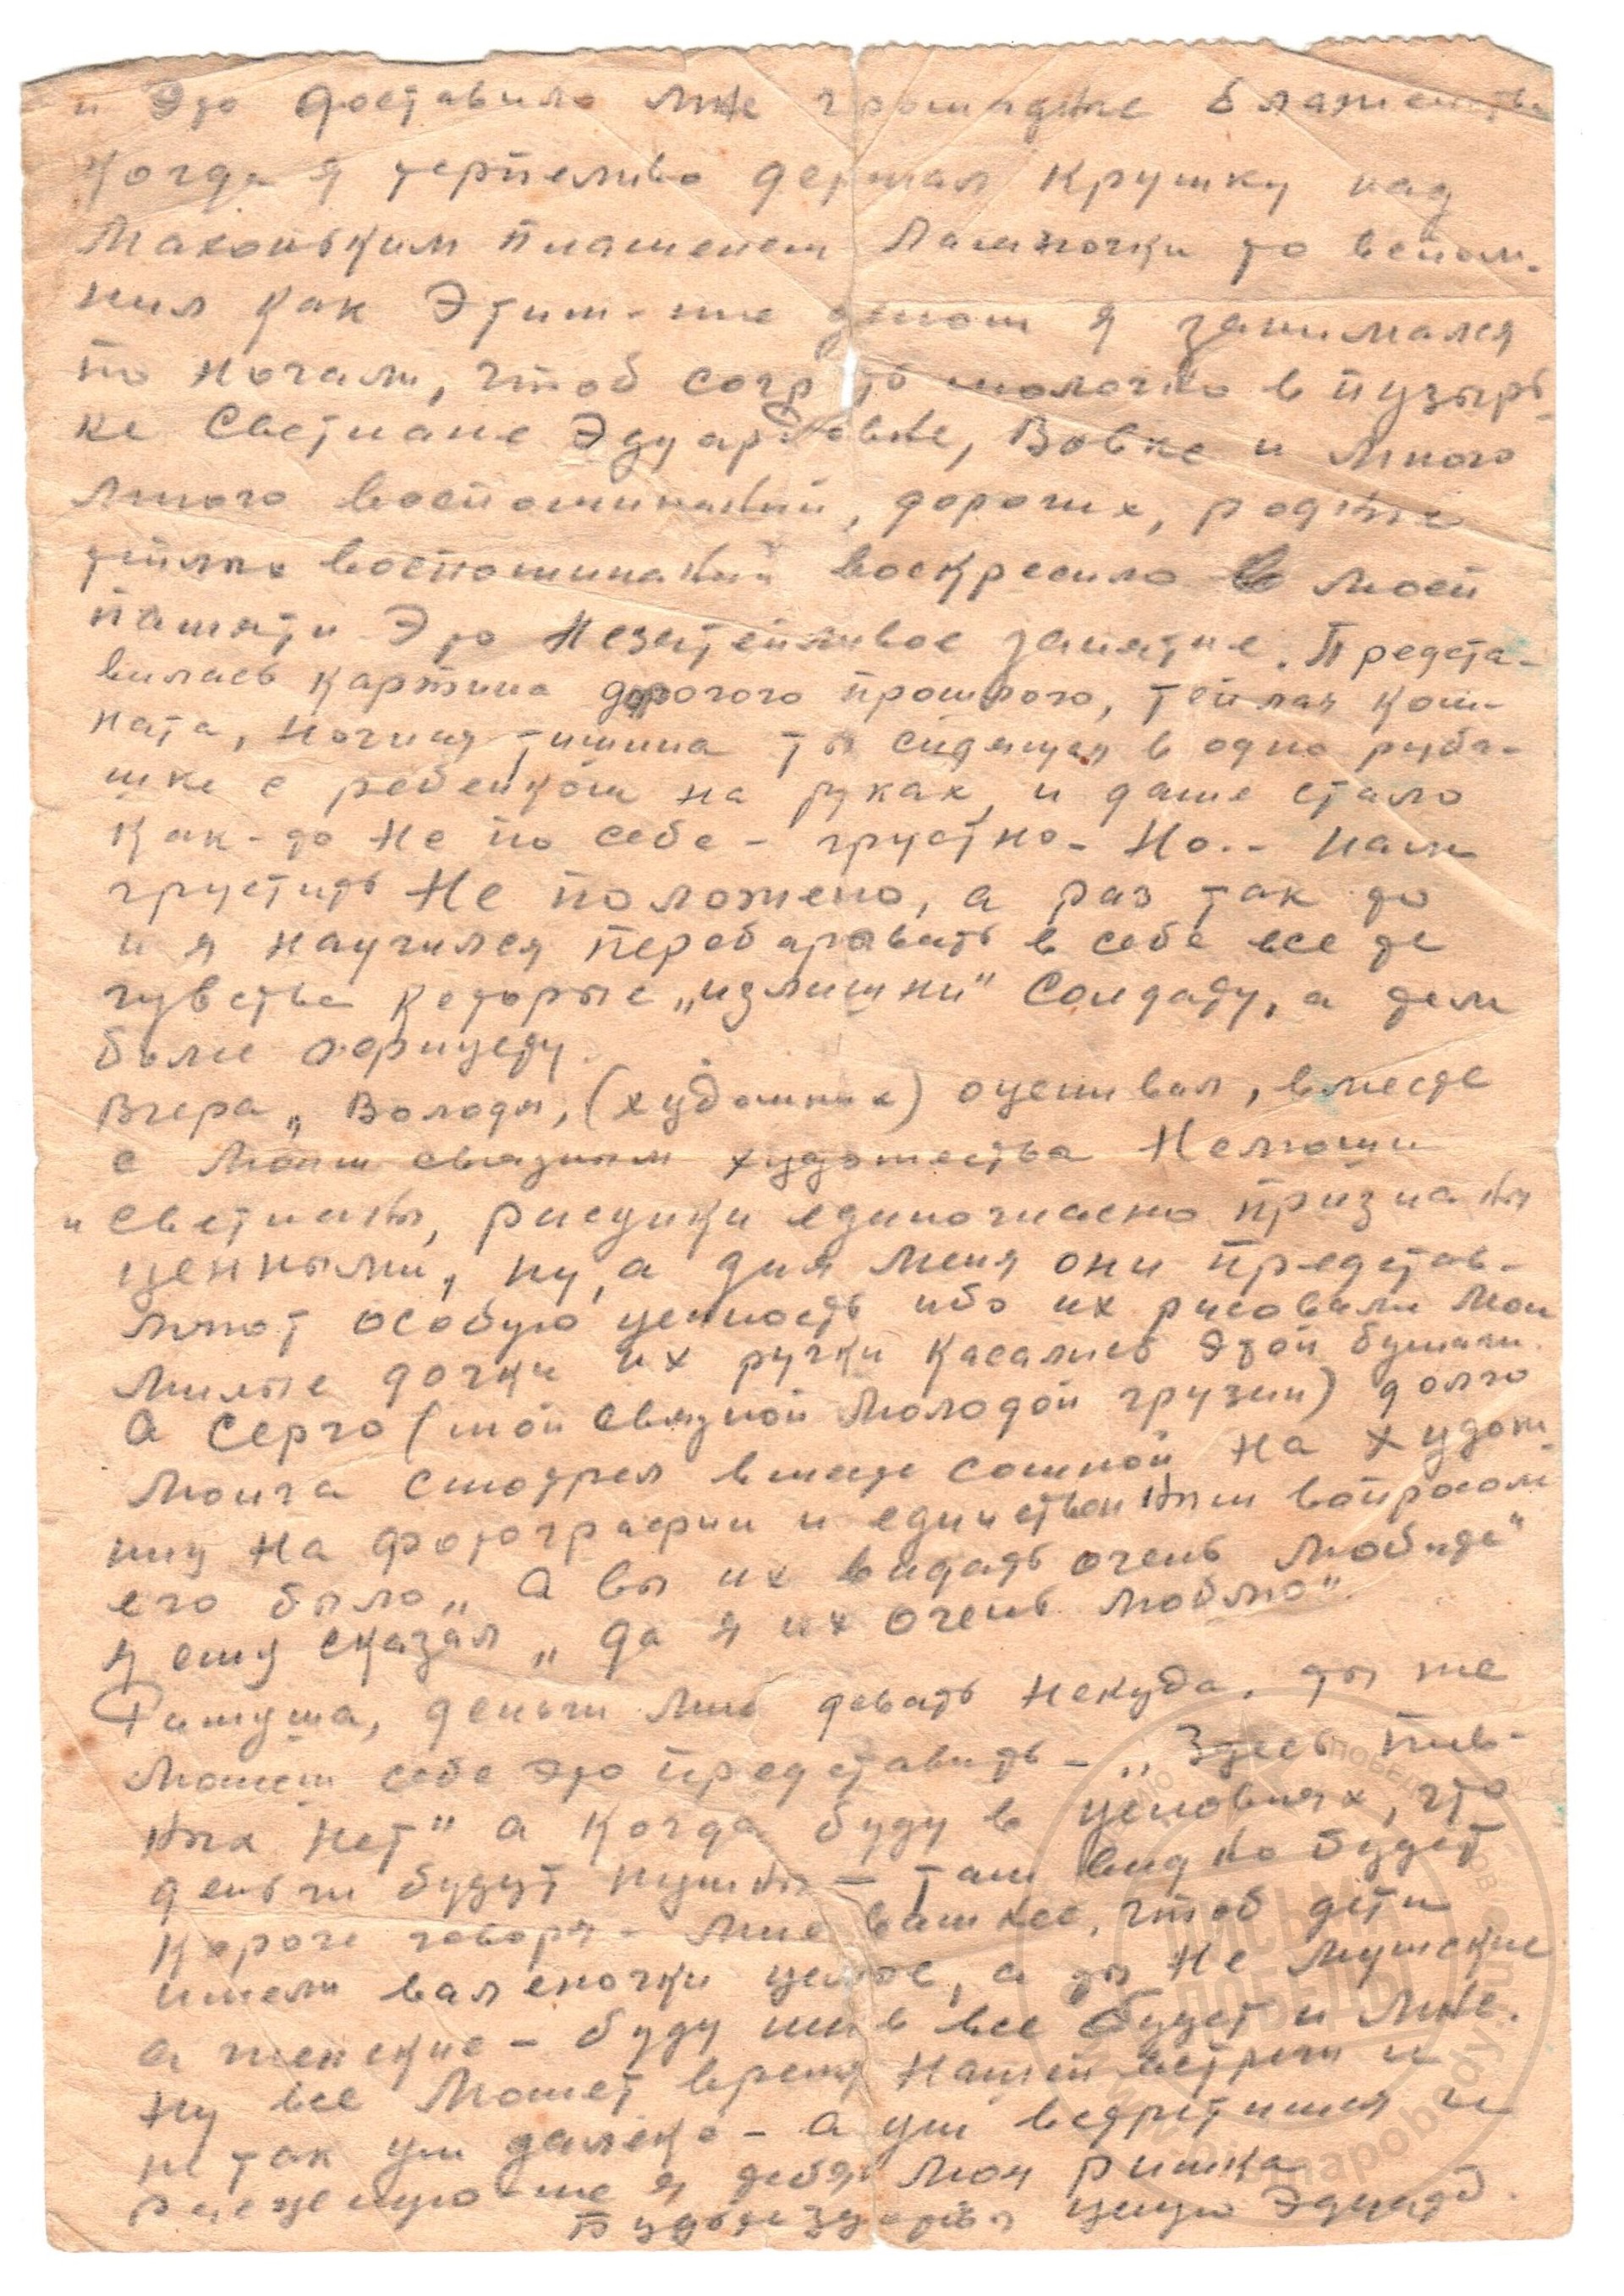 и это доставило мне громадное блаженство
Когда я терпеливо держал крушку над
махоньким пламенем лампочки то вспом-
нил как этим-же делом я занимался
по ночам, чтоб согр ть молочко в пузырь-
ке Светлане Эдуардовне, Вовке и много
много воспоминаний, дорогих, родных
теплых воспоминаний воскресило в моей
памяти это незатейливое занятие. Предста-
вилась картина дорогого прошлого, теплая ком-
ната, ночная тишина ты сидящая в одно руба-
шке с ребенком на руках, и даже стало
как-то не по себе - грустно - Но.. нам
грустить не положено, а раз так то
и я научился перебарывать в себе все те
чувства которые „излишни" солдату, а тем
боле офицеру.
Вчера „Володя, (художник) оценивал, вместе
с моим связным художества Нелюши
и Светланы, рисунки единогласно признаны
ценными, ну, а для меня они представ-
ляют особую ценность ибо их рисовали мои
милые дочки их ручки касались этой бумаги.
А Серго (мой связной молодой грузин) долго
молча смотрел вместе сомной на худож-
ниц на фотографии и единственным вопросом
его было „А вы их видать очень любите"
Я ему сказал „да я их очень люблю".
Римуша, деньги мне девать некуда, ты же
можеш себе это представить - „Здесь пив-
ных нет" а когда буду в условиях, что
деньги будут нужны - там видно будет
Короче говоря - мне важнее, чтоб дети
имели валеночки целые, а ты не мужские
а женские - буду жив все будет и мне.
Ну все может время нашей встречи и
не так уж далеко - а уж встретимся и
расцелую-же я тебя моя Римка
Будьте здоровы целую Эдуард.
ПИСЬМА
ПОБЕДЫ